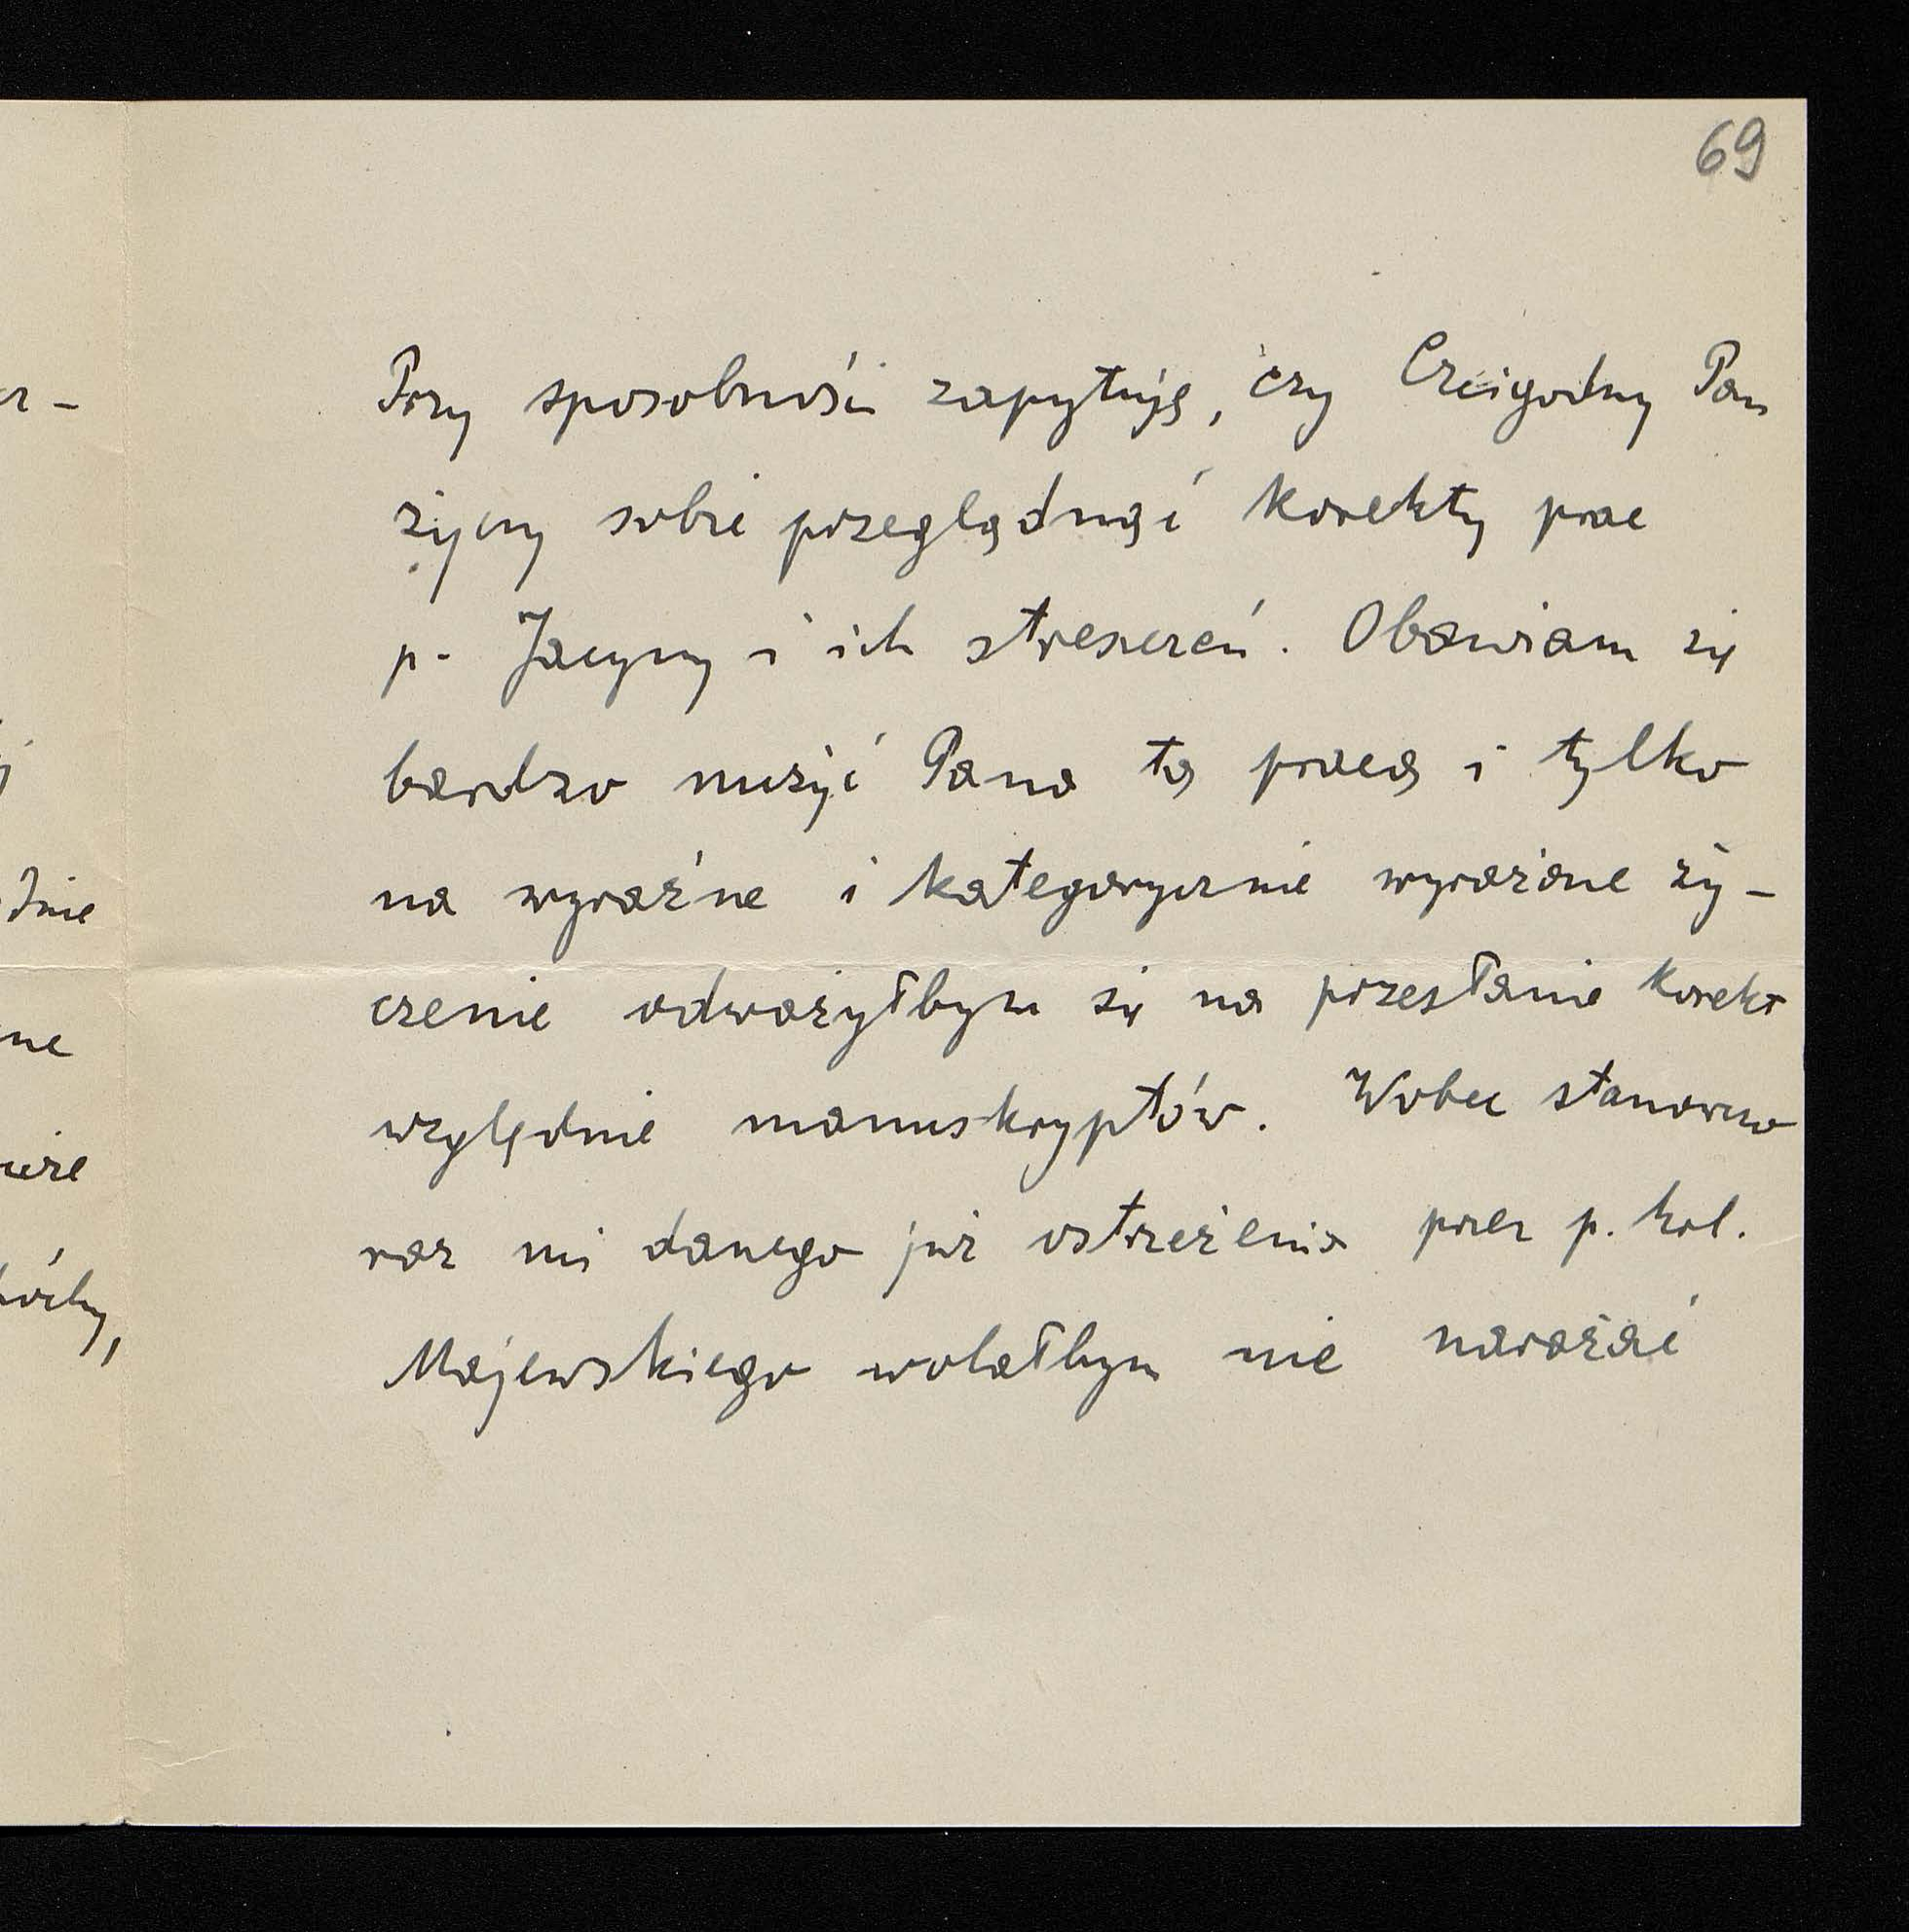 69
Przy sposobności zapytuję, czy Czcigodny Pan
życzy sobie przeglądnąć korekty prac
p. Jacyny i ich streszczeń. Obawiam się
bardzo nużyć Pana tą pracą i tylko
na wyraźne i kategorycznie wyrażone ży-
czenie odważyłbym się na przesłanie korekt
względnie manuskryptów. Wobec stanowczo
raz mi danego już ostrzeżenia przez p. kol.
Majewskiego wolałbym nie narażać